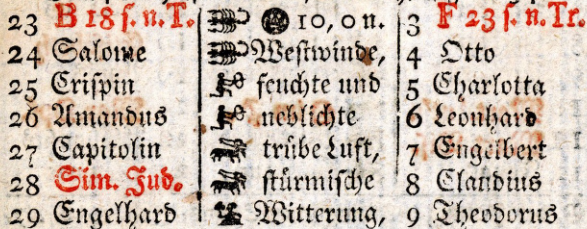 23 B 18 s. n. T. 10, 0 n. 3 F 23 s. n. Tr.
24 Salome Westwinde, 4 Otto
25 Crispin feuchte und 5 Charlotta
26 Amandus neblichte 6 Leonhard
27 Capitolin trübe Luft, 7 Engelbert
28 Sim. Jud. stürmische 8 Claudius
29 Engelhard Witterung, 9 Theodorus